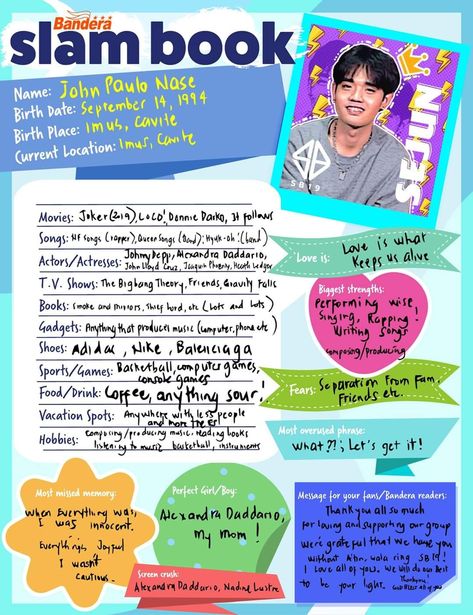 Bandera
slam book
Name: John Paulo Nase
Birth Date: September 14, 1994
Birth Place: Imus, Cavite
Current Location: Imus, Cavite
SB19
SEJUN
Movies: Joker (2019), COCO, Donnie Darko, It follows
Songs: NF songs (rapper), Queen Songs (Band), Hyuk-oh! (band)
Actors/Actresses: Johnny Depp, Alexandra Daddario,
John Lloyd Cruz, Joaquin Phoenix, Heath Ledger
T.V. Shows: The Big bang Theory, Friends, Gravity Falls
Books: Smoke and mirrors, Thief lord, etc (lots and lots)
Gadgets: Anything that produces music (computer, phone, etc
Shoes: Adidas, Nike, Balenciaga
Sports/Games: Basketball, computer games,
console games
Food/Drink: Coffee, anything sour!
Vacation Spots: Anywhere with less people
and more trees!
Hobbies: composing/producing music, reading books
listening to music basketball, instruments
Love is: Love is what
keeps us alive
Biggest strengths:
Performing wise,
Singing, Rapping!
Writing songs
composing/producing
Fears: Separation from Fam,
Friends etc.
Most overused phrase:
What??; Let's get it!
Most missed memory:
When everything was,
I was innocent.
Everything's Joyful
I wasn't
cautious.
Perfect Girl/Boy:
Alexandra Daddario,
My Mom!
Screen crush:
Alexandra Daddario, Nadine Lustre
Message for your fans/Bandera readers:
Thank you all so much
for loving and supporting our group
we're grateful that we have you
without Atin, wala ring SB19!
I love all of you. We will do our best
to be your light. Thankyou!
God bless all of you